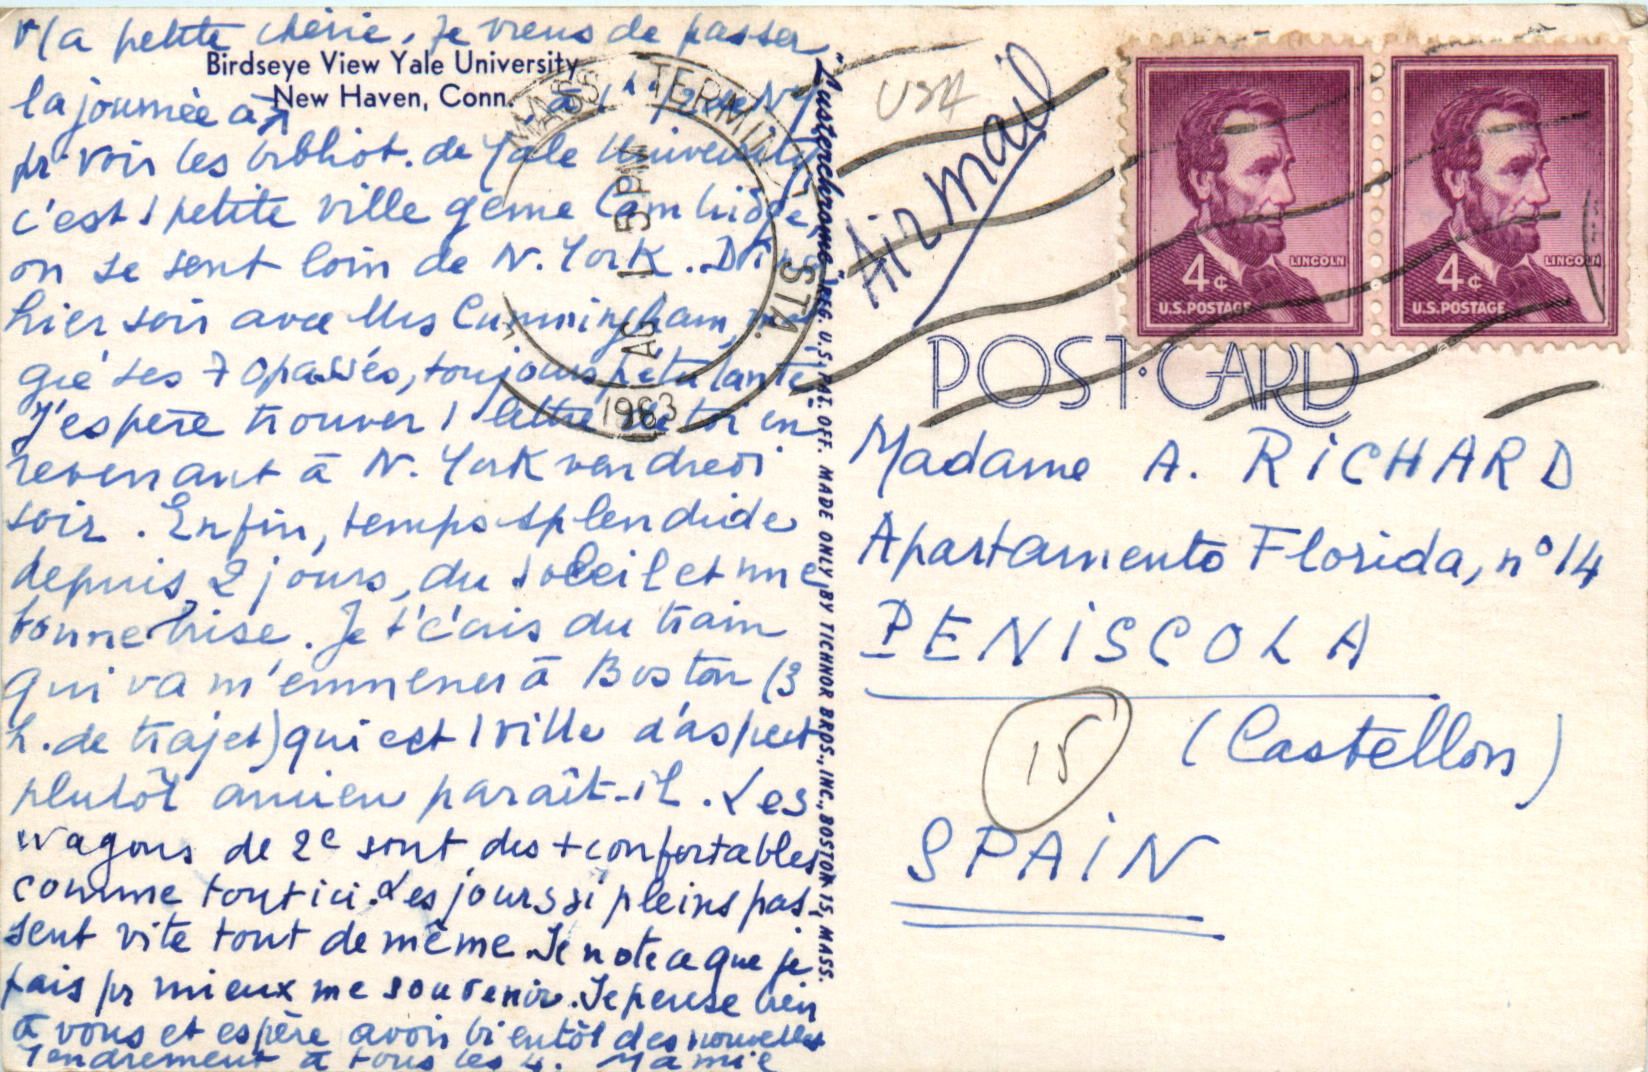 Ma petite chérie, Je viens de passer
Birdseye View Yale University
la journée à
New Haven, Conn.
à 1h ½ de NY
pr voir les bibliot. de Yale University,
c'est 1 petite ville genre Cambridge,
on se sent loin de N. York. Dîné
hier soir avec Mrs Cunningham,
ses 70 passés, toujours pétulante.
J'espère trouver 1 lettre de toi en
revenant à N. York vendredi
soir. Enfin, temps splendide
depuis 2 jours, du soleil et une
bonne brise. Je t'écris du train
qui va m'emmener à Boston (3
h. de trajet) qui est 1 ville d'aspect
plutôt ancien paraît-il. Les
wagons de 2e sont des + confortables
comme tout ici. Les jours si pleins pas-
sent vite tout de même. Je note ce que je
fais pr mieux me souvenir. Je pense bien
à vous et espère avoir bientôt des nouvelles
Tendrement à tous les 4. Mamie
"Lusterchrome" REG. U.S. PAT. OFF. MADE ONLY BY TICHNOR BROS., INC., BOSTON 15, MASS.
MASS TERMINAL STA.
5 PM
AG 1
1963
USA
Air mail
4¢ LINCOLN
U.S. POSTAGE
4¢ LINCOLN
U.S. POSTAGE
POST CARD
Madame A. RiCHARD
Apartamento Florida, n° 14
PENiSCOLA
(Castellon)
15
SPAiN